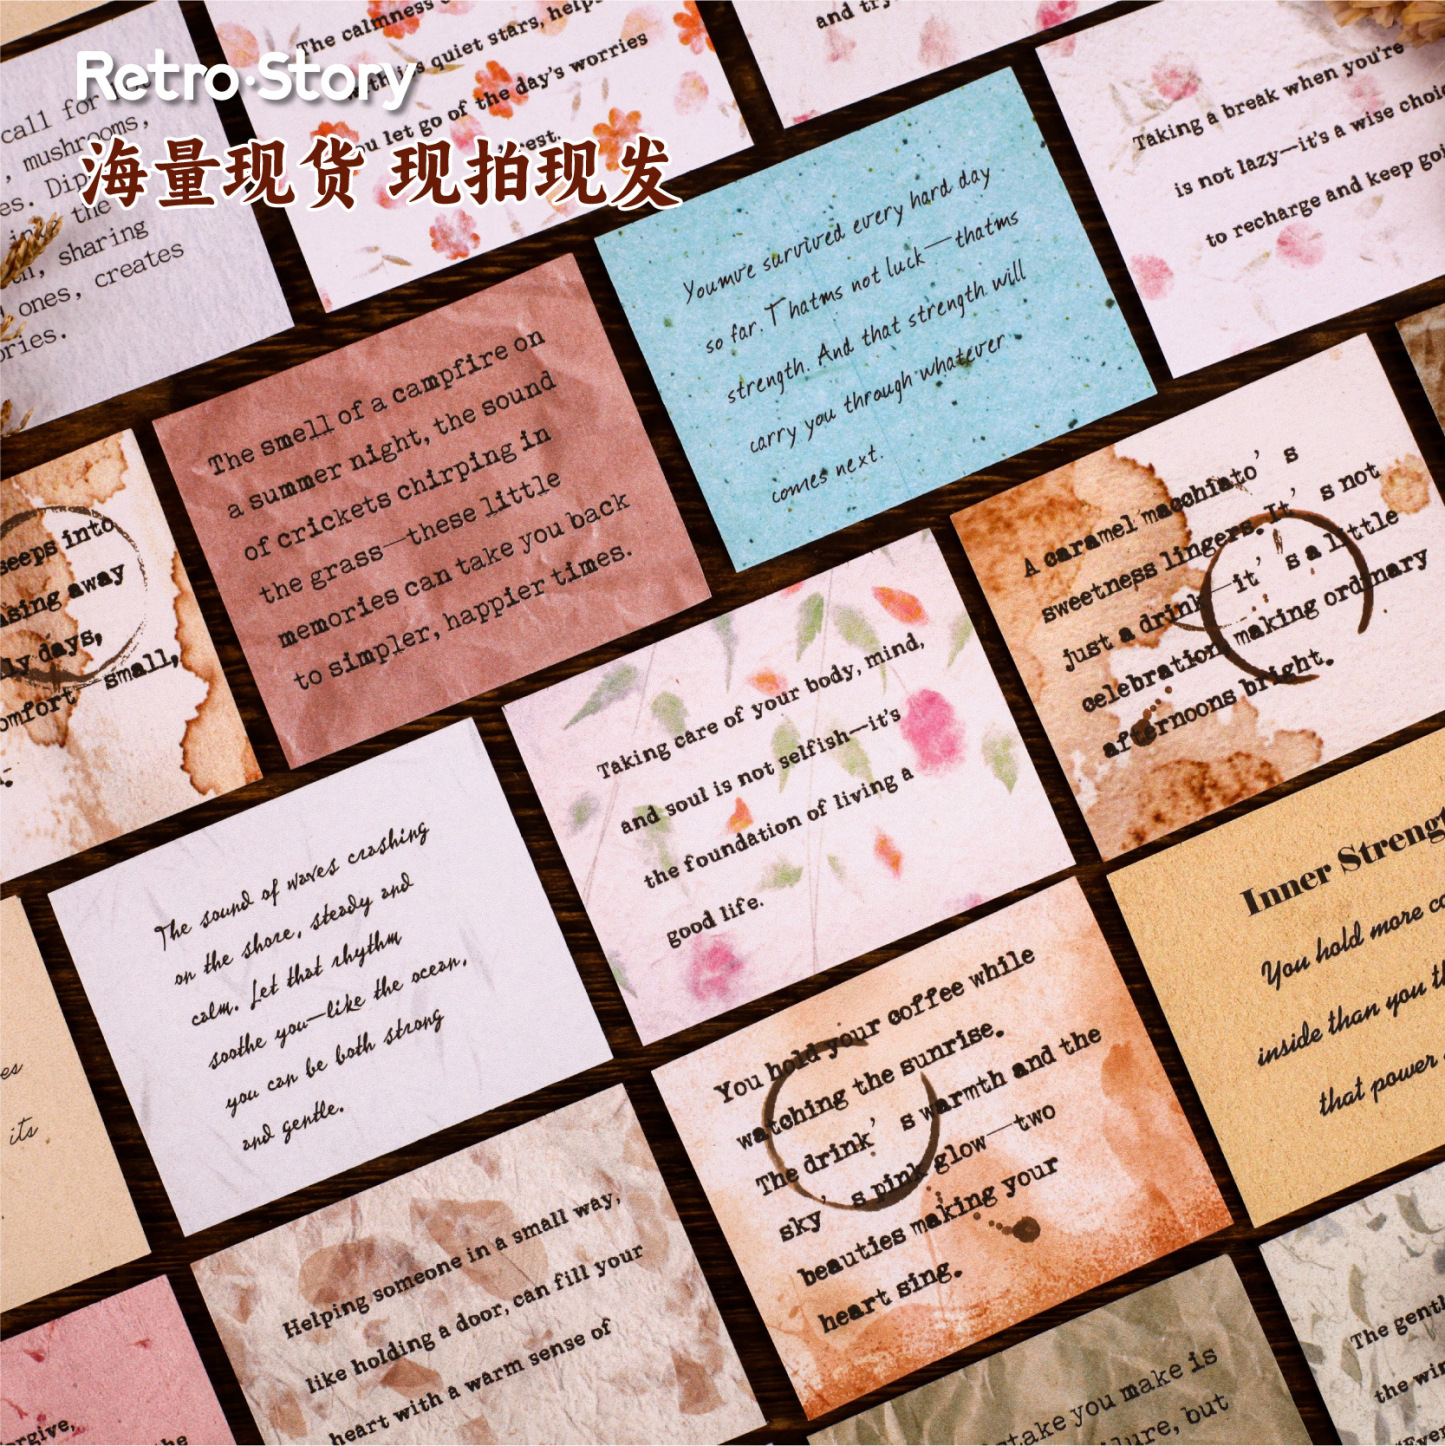 Retro·Story
海量现货 现拍现发
call for
mushrooms,
es. Dip
the
sharing
ones, creates
ories.
The calmness
quiet stars, helps
you let go of the day's worries
rest.
and try
Taking a break when you're
is not lazy—it's a wise choi
to recharge and keep goi
Youmve survived every hard day
so far. Thatms not luck—thatms
strength. And that strength will
carry you through whatever
comes next.
The smell of a campfire on
a summer night, the sound
of crickets chirping in
the grass—these little
memories can take you back
to simpler, happier times.
seeps into
asing away
ly days,
omfort small,
A caramel macchiato's
sweetness lingers. It's not
just a drink—it's a little
celebration making ordinary
afternoons bright.
Taking care of your body, mind,
and soul is not selfish—it's
the foundation of living a
good life.
The sound of waves crashing
on the shore, steady and
calm. Let that rhythm
soothe you—like the ocean,
you can be both strong
and gentle.
Inner Strengt
You hold more co
inside than you th
that power
You hold your coffee while
watching the sunrise.
The drink's warmth and the
sky's pink glow—two
beauties making your
heart sing.
es
its
Helping someone in a small way,
like holding a door, can fill your
heart with a warm sense of
orgive,
the
stake you make is
ilure, but
The gentl
the win
"Ever